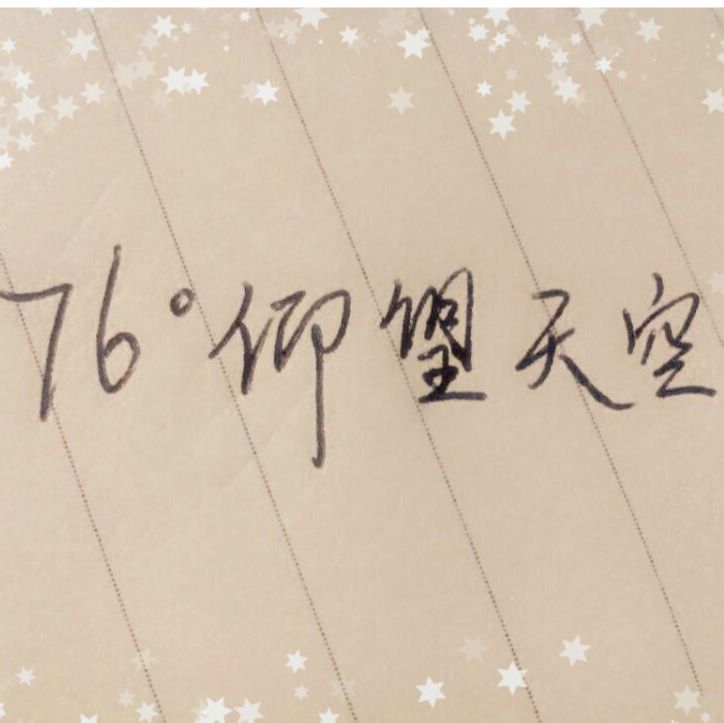 76°仰望天空